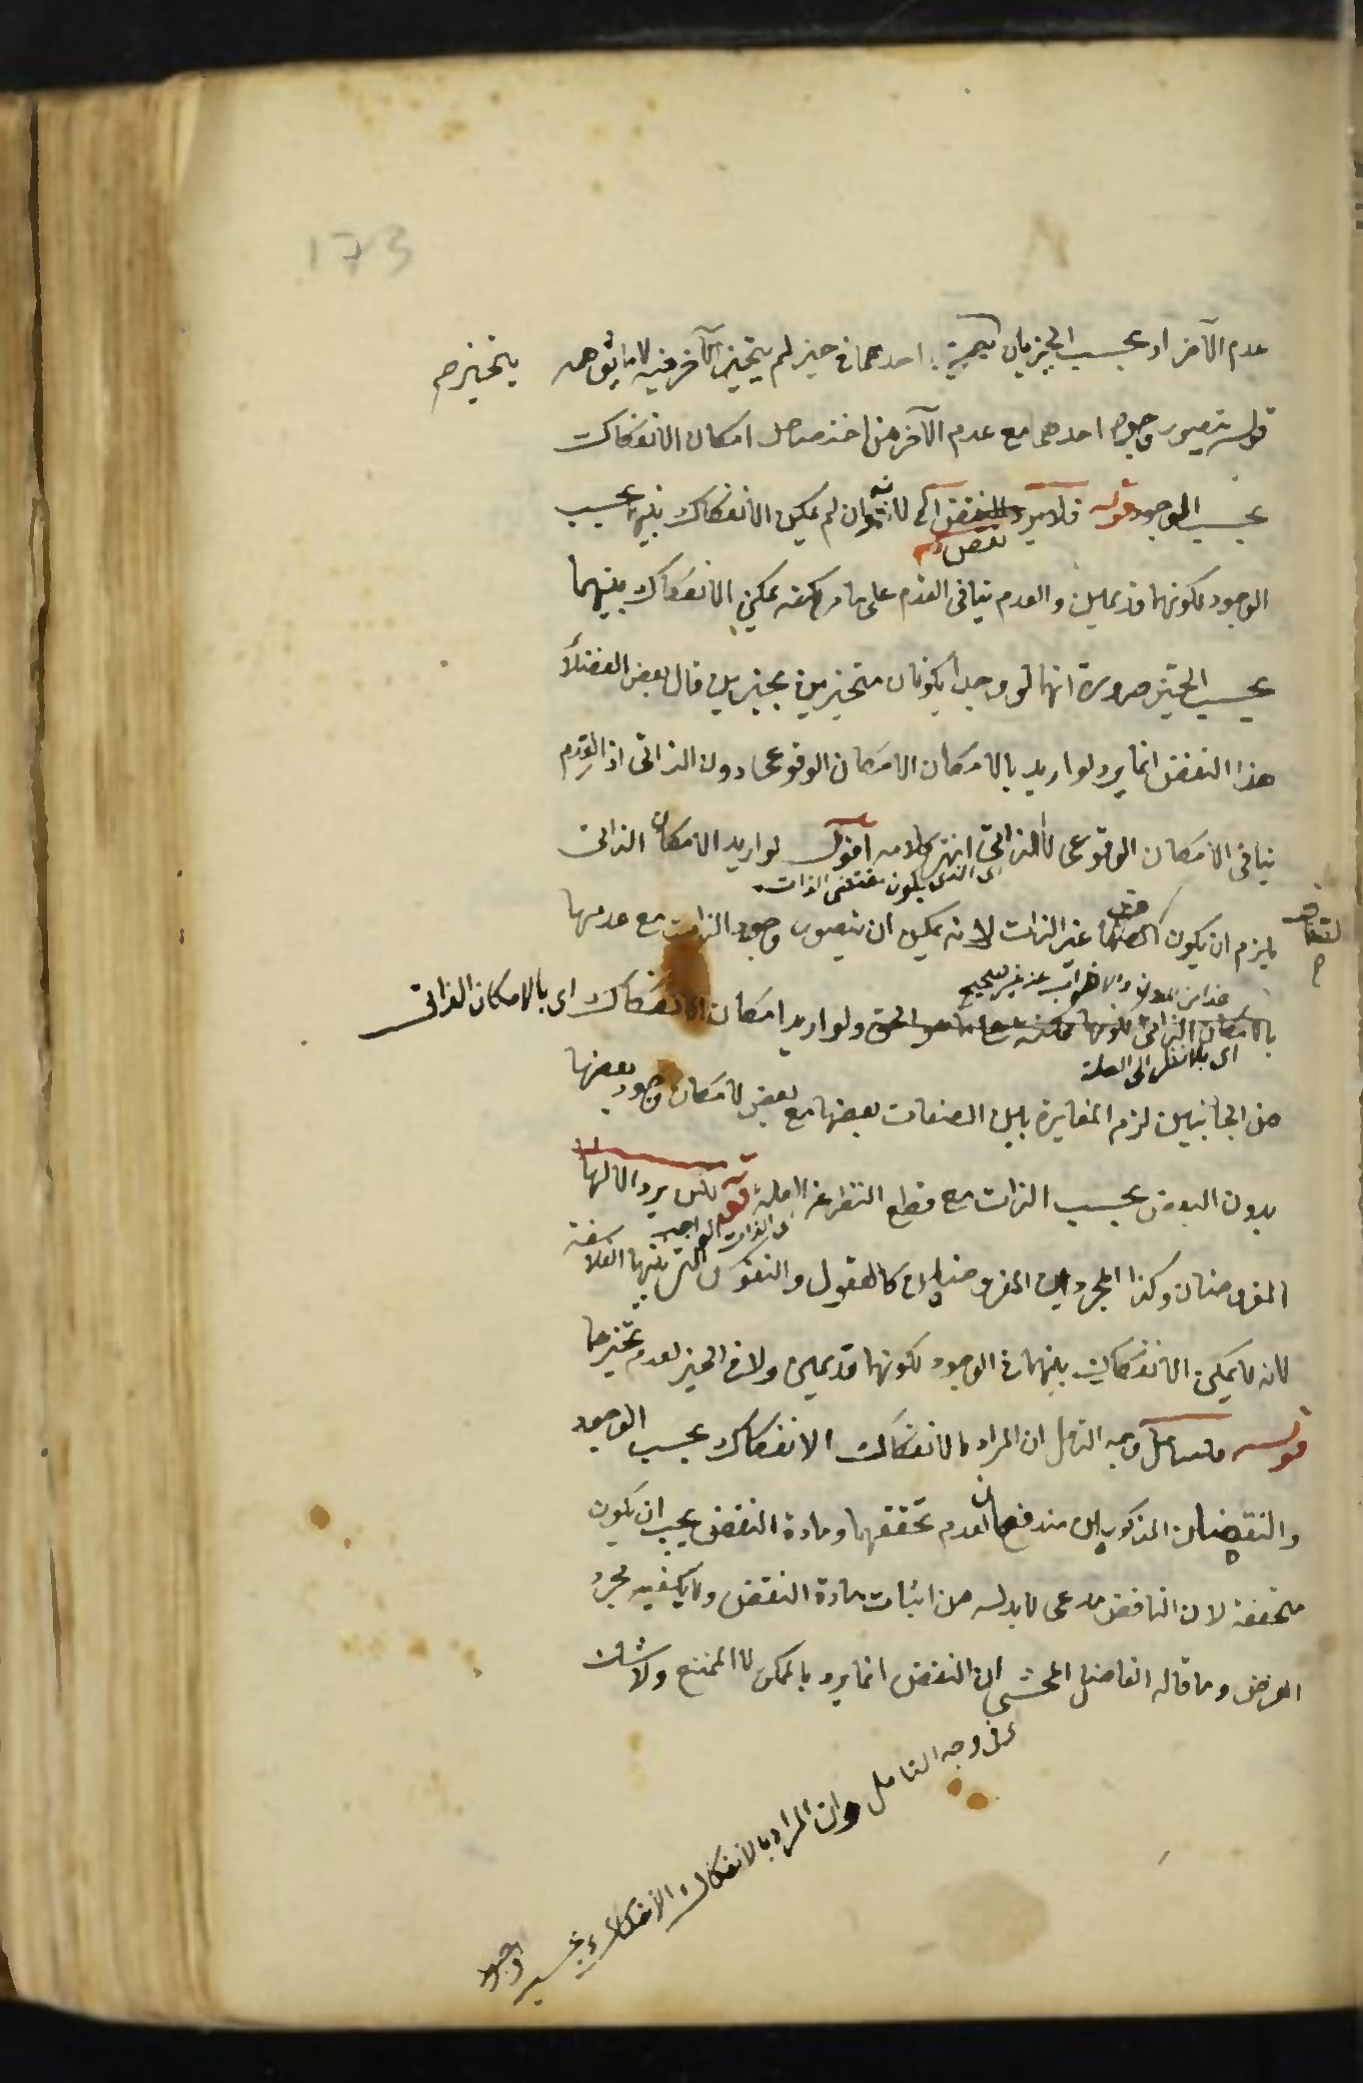 173
عدم الآخر او بحسب الحيز بان احدهما فى حيز لم يتحيز الآخر فيه
يتحيز صح
قوله يتصور وجود احدهما مع عدم الآخر هذا حاصل امكان الانفكاك
بحسب الوجود قوله فلا يرد النقض اه لانه وان لم يمكن الانفكاك بينهما بحسب
نقض
الوجود لكونهما قديمين والعدم ينافى القدم على ما مر لكنه يمكن الانفكاك بينهما
بحسب الحيز ضرورة انهما لو وجدا يكونان متحيزين بحيزين قال بعض الفضلاء
هذا النقض انما يرد لو اريد بالامكان الامكان الوقوعى دون الذاتى اذ القدم
ينافى الامكان الوقوعى لا الذاتى انتهى كلامه اقول لو اريد الامكان الذاتى
اى الذى يكون مقتضى الذات
يلزم ان يكون الصفة غير الذات لانه يمكن ان يتصور وجود الذات مع عدمها
بالامكان الذاتى لكونها ممكنة ولو اريد امكان الانفكاك اى بالامكان الذاتى
اى بلا نظر الى العلة
من الجانبين لزم المغايرة بين الصفات بعضها مع بعض لامكان وجود بعضها
بدون البعض بحسب الذات مع قطع النظر عن العلة قوله لكن يرد الالهان
المفروضان وكذا المجردين المفروضين كالعقول والنفوس التى يثبتها الفلاسفة
لانه لا يمكن الانفكاك بينهما فى الوجود لكونهما قديمين ولا فى الحيز لعدم تحيزهما
قوله فتأمل وجه التأمل ان المراد بالانفكاك الانفكاك بحسب الوجود
والنقضان المذكوران مندفعان لعدم تحققهما ومادة النقض يجب ان يكون
متحققة لان الناقض مدعى لا بد له من اثبات مادة النقض ولا يكفيه مجرد
الفرض وما قاله الفاضل المحشى ان النقض انما يرد بالممكن لا الممتنع ولا شك
فى وجه التأمل وان المراد بالانفكاك الانفكاك بحسب الوجود